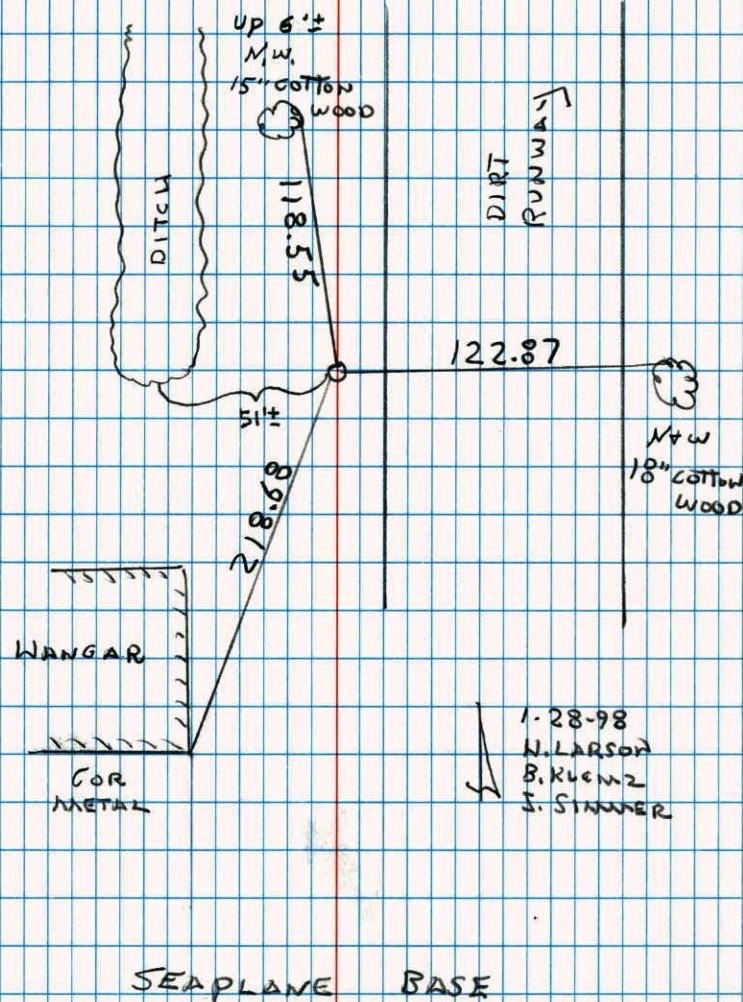 UP 6'±
N.W.
15" COTTON
WOOD
DIRT
RUNWAY
DITCH
118.55
122.87
51'±
N+W
18" COTTON
WOOD
218.98
HANGAR
COR
METAL
1-28-98
N. LARSON
B. KLEMZ
J. SIMMER
SEAPLANE BASE